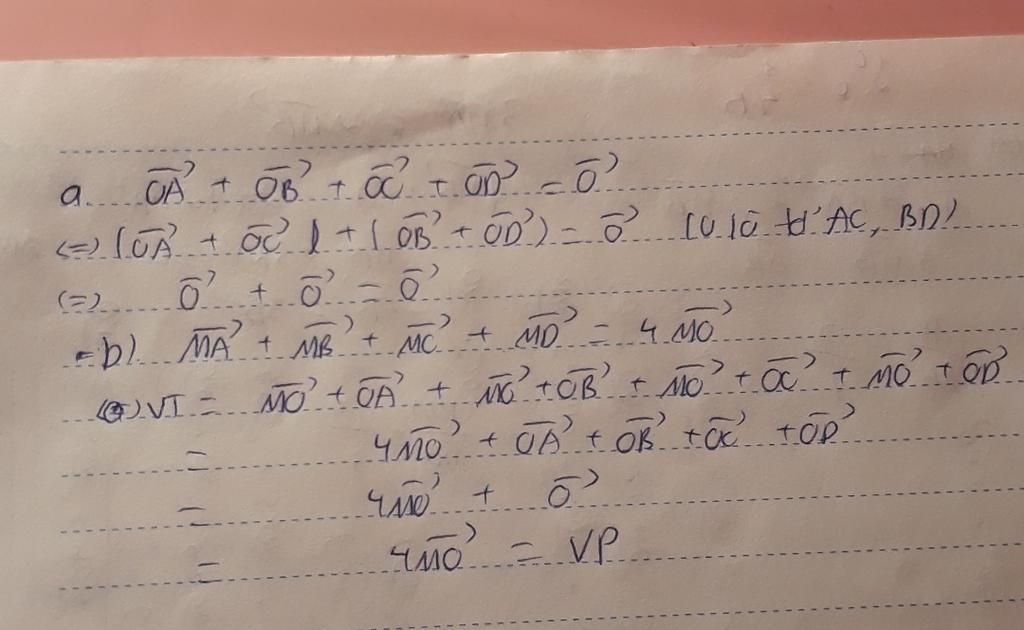 a. $\overrightarrow{OA} + \overrightarrow{OB} + \overrightarrow{OC} + \overrightarrow{OD} = \overrightarrow{O}$
(=) ($\overrightarrow{OA} + \overrightarrow{OC}$) + ($\overrightarrow{OB} + \overrightarrow{OD}$) = $\overrightarrow{O}$ (O là AC, BD)
(=) $\overrightarrow{O} + \overrightarrow{O} = \overrightarrow{O}$
b) $\overrightarrow{MA} + \overrightarrow{MB} + \overrightarrow{MC} + \overrightarrow{MD} = 4\overrightarrow{MO}$
VT = $\overrightarrow{MO} + \overrightarrow{OA} + \overrightarrow{MO} + \overrightarrow{OB} + \overrightarrow{MO} + \overrightarrow{OC} + \overrightarrow{MO} + \overrightarrow{OD}$
= $4\overrightarrow{MO} + \overrightarrow{OA} + \overrightarrow{OB} + \overrightarrow{OC} + \overrightarrow{OD}$
= $4\overrightarrow{MO} + \overrightarrow{O}$
= $4\overrightarrow{MO}$ = VP